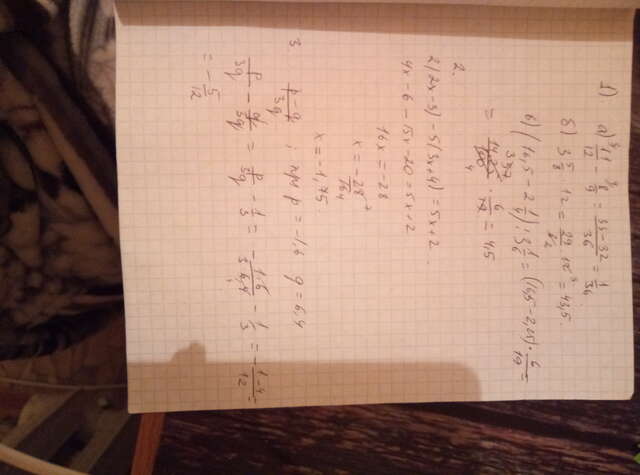 1)
а) 11/12 - 8/9 = 33-32/36 = 1/36
б) 3 5/8 · 12 = 29/8 · 12 = 43,5.
в) (16,5 - 2 1/4) : 3 1/6 = (16,5 - 2,25) · 6/19 =
= · 6/19 = 4,5
2.
2(2x-3) - 5(3x+4) = 5x+2.
4x - 6 - 15x - 20 = 5x + 2
16x = -28
x = - 28/16
x = -1,75.
3 p-q/3q ; при p = -1,6 q = 6,4
p/3q - q/3q = p/3q - 1/3 = - 1,6/3·6,4 - 1/3 = - 1-4/12 =
= - 5/12